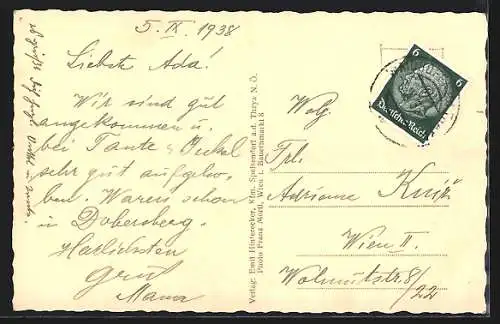 5. IX. 1938
Liebste Ada!
Wir sind gut
angekommen u.
bei Tante u. Onkel
sehr gut aufgeho-
ben. Waren schon
in Dobersberg.
Herzlichsten
Gruß
Mama
Verlag: Emil Hinterecker, Kfm. Speisendorf a.d. Thaya N.Ö.
Photo Franz Mörtl, Wien I. Bauernmarkt 8
6 6
Deutsches Reich
Wolg.
Frl.
Adriane
Wien II.
Wolmutstr. 8/
22